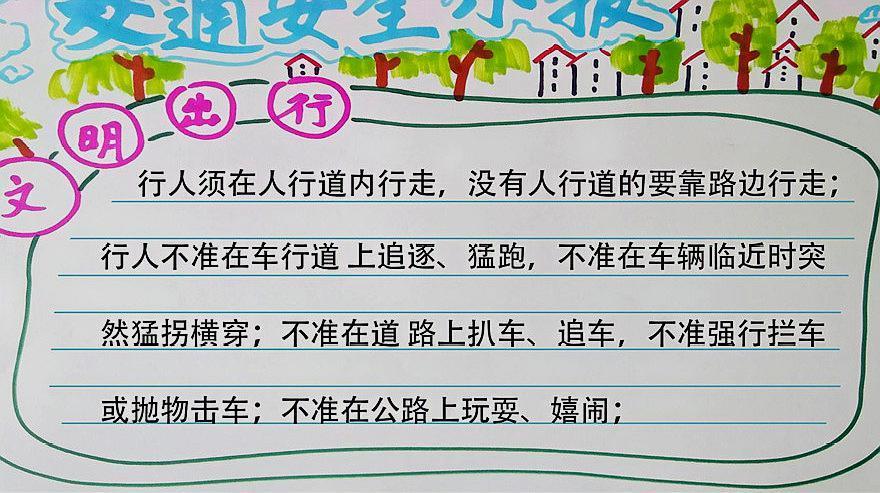 交通安全小报
文明出行
行人须在人行道内行走，没有人行道的要靠路边行走；
行人不准在车行道 上追逐、猛跑，不准在车辆临近时突
然猛拐横穿；不准在道 路上扒车、追车，不准强行拦车
或抛物击车；不准在公路上玩耍、嬉闹；